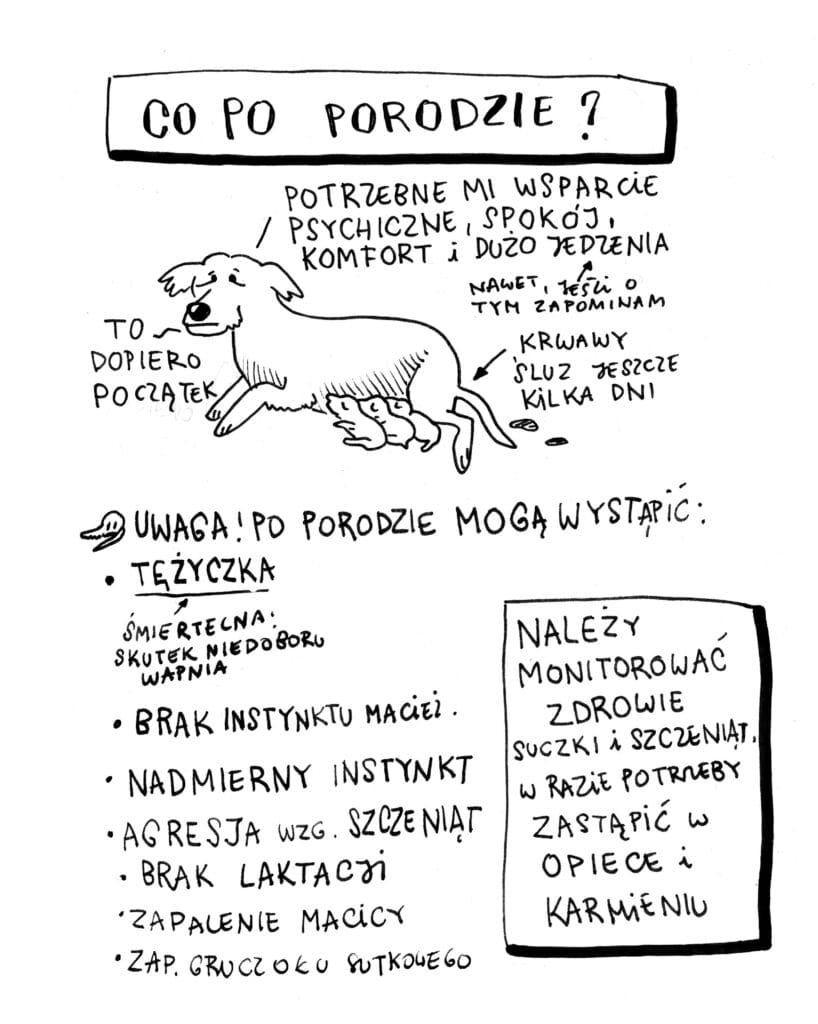 CO PO PORODZIE?
POTRZEBNE MI WSPARCIE
PSYCHICZNE, SPOKÓJ,
KOMFORT i DUŻO JEDZENIA
NAWET, JEŚLI O
TYM ZAPOMINAM
TO
DOPIERO
POCZĄTEK
KRWAWY
ŚLUZ JESZCZE
KILKA DNI
UWAGA! PO PORODZIE MOGĄ WYSTĄPIĆ:
• TĘŻYCZKA
ŚMIERTELNA:
SKUTEK NIEDOBORU
WAPNIA
• BRAK INSTYNKTU MACIEŻ.
• NADMIERNY INSTYNKT
• AGRESJA WZG. SZCZENIĄT
• BRAK LAKTACJI
• ZAPALENIE MACICY
• ZAP. GRUCZOŁU SUTKOWEGO
NALEŻY
MONITOROWAĆ
ZDROWIE
SUCZKI i SZCZENIĄT.
W RAZIE POTRZEBY
ZASTĄPIĆ W
OPIECE i
KARMIENIU